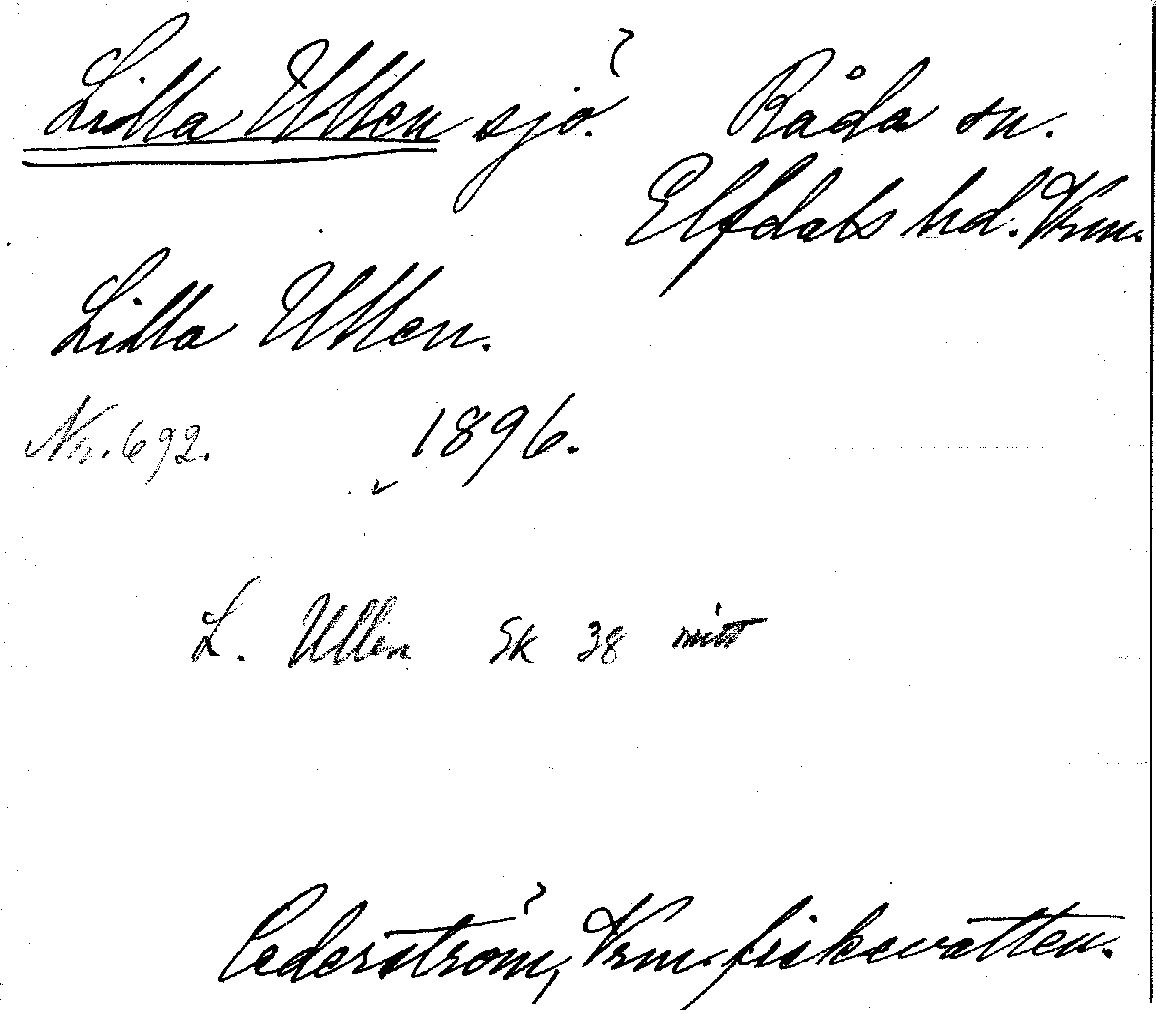 Lilla Ullen sjö. Råda sn.
Elfdals hd. Vrm.
Lilla Ullen.
Nr. 692. 1896.
L. Ullen Sk 38 mitt
Cederström, Vrm. fiskevatten.